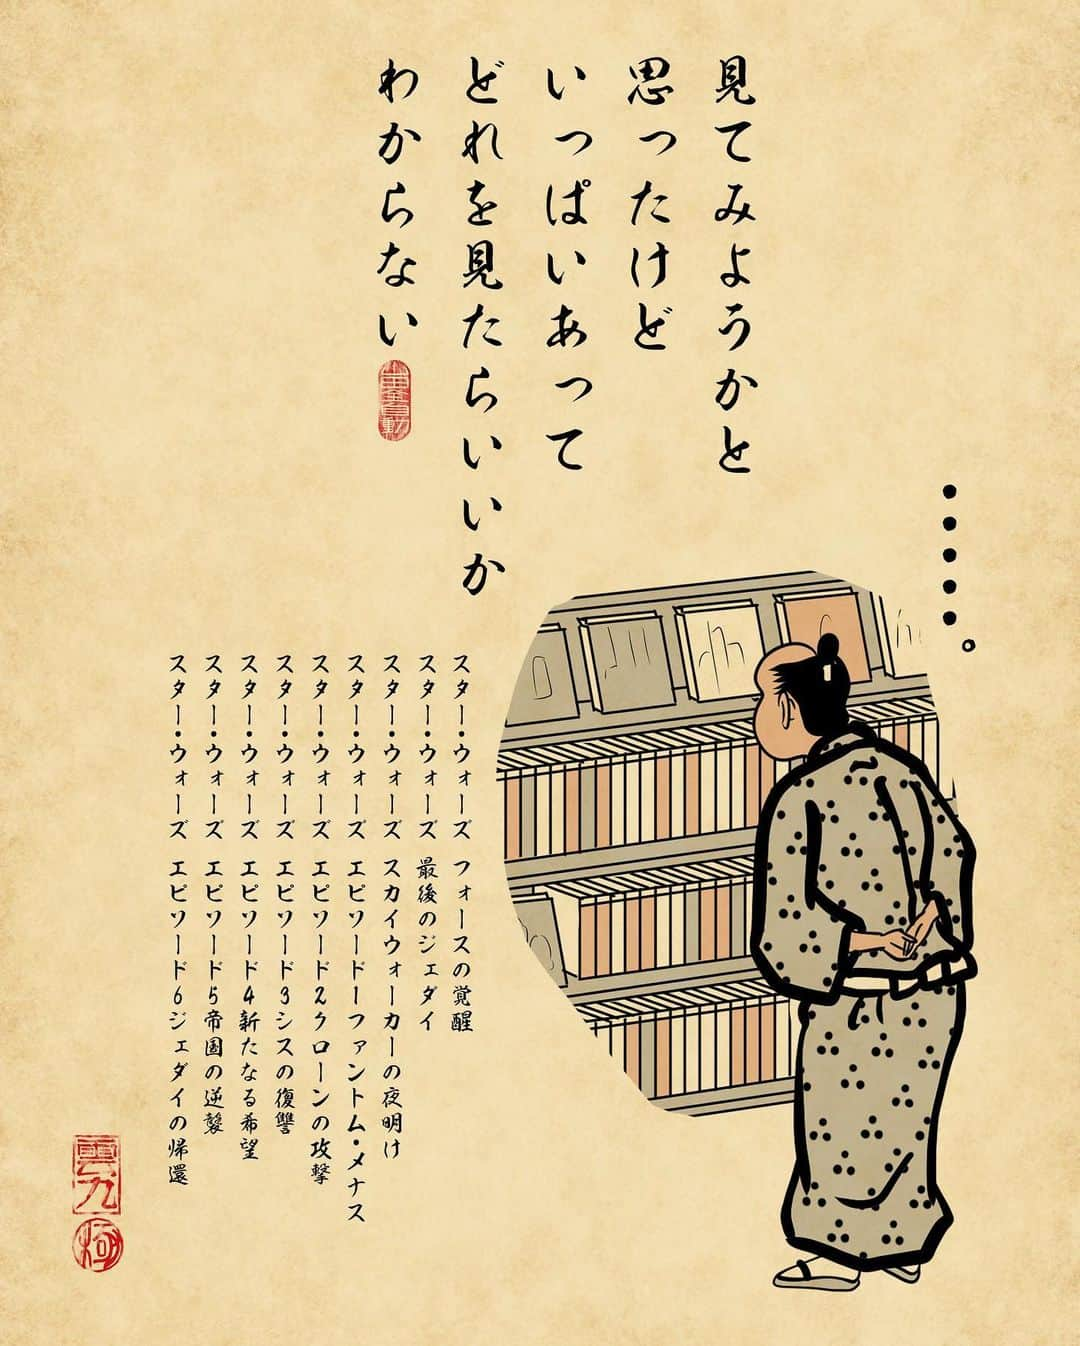 見てみようかと
思ったけど
いっぱいあって
どれを見たらいいか
わからない
スター・ウォーズ フォースの覚醒
スター・ウォーズ 最後のジェダイ
スター・ウォーズ スカイウォーカーの夜明け
スター・ウォーズ エピソード1ファントム・メナス
スター・ウォーズ エピソード2クローンの攻撃
スター・ウォーズ エピソード3シスの復讐
スター・ウォーズ エピソード4新たなる希望
スター・ウォーズ エピソード5帝国の逆襲
スター・ウォーズ エピソード6ジェダイの帰還